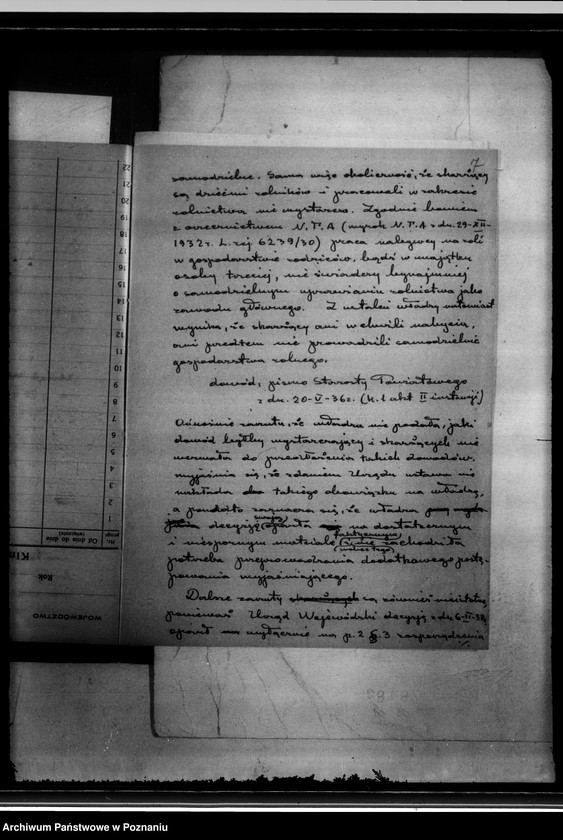 7
samodzielne. Sama więc okoliczność, że skarżący
są dziećmi rolników i pracowali w zakresie
rolnictwa nie wystarcza. Zgodnie bowiem
z orzecznictwem N.T.A (wyrok N.T.A z dn. 29-XII-
1932 r. L. rej 6239/30) praca należycy na roli
w gospodarstwie rodziców, bądź w majątku
osoby trzeciej, nie świadczy bynajmniej
o samodzielnym uprawianiu rolnictwa jako
zawodu głównego. Z ustaleń władzy natomiast
wynika, że skarżący ani w chwili nabycia,
ani przedtem nie prowadzili samodzielnie
gospodarstwa rolnego.
dowód, pismo Starosty Powiatowego
z dn. 20-V-36 r. (k. 1 akt II instancji)
Odnośnie zarzutu, że władza nie podała, jaki
dowód byłby wystarczający i skarżących nie
wezwała do przedłożenia takich dowodów.
wyjaśnia się, że zdaniem Urzędu ustawa nie
nakłada takiego obowiązku na władzę,
a ponadto zaznacza się, że władza
decyzję swoją oparła na dostatecznym
i niespornym materiale faktycznym i nie zachodziła
wobec tego
potrzeba przeprowadzenia dodatkowego postę-
powania wyjaśniającego.
Dalsze zarzuty są również nieistotne,
ponieważ Urząd Wojewódzki decyzję z dn. 6-
oparł wyłącznie na p. 2 § 3 rozporządzenia
22
21
20
19
18
17
16
15
14
13
12
11
10
9
8
7
6
5
4
3
2
1
Nr.
Od dnia do dnia
(włącznie)
Rok
WOJEWÓDZTWO
Archiwum Państwowe w Poznaniu